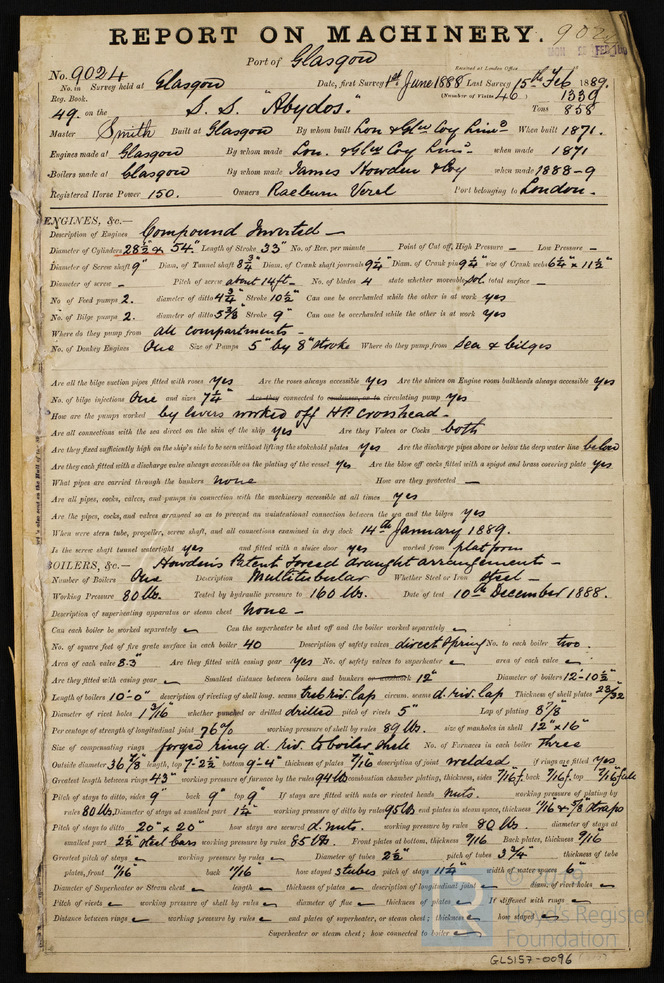 REPORT ON MACHINERY. 902
MON. 25 FEB 188
Port of Glasgow
Received at London Office
No. 9024
No. in Survey held at Glasgow Date, first Survey 1st June 1888 Last Survey 15th Feb 1889.
Reg. Book. (Number of Visits 46) 1339
49. on the S. S. "Abydos." Tons 858
Master Smith Built at Glasgow By whom built Lon & Glw Coy Limd When built 1871.
Engines made at Glasgow By whom made Lon. & Glw Coy Limd when made 1871
Boilers made at Glasgow By whom made James Howden & Coy when made 1888-9
Registered Horse Power 150. Owners Raeburn Verel Port belonging to London.
ENGINES, &c.—
Description of Engines Compound Inverted —
Diameter of Cylinders 28½" & 54" Length of Stroke 33" No. of Rev. per minute Point of Cut off, High Pressure — Low Pressure —
Diameter of Screw shaft 9" Diam. of Tunnel shaft 8¾" Diam. of Crank shaft journals 9¼" Diam. of Crank pin 9¼" size of Crank webs 6¼" x 11½"
Diameter of screw — Pitch of screw about 14ft — No. of blades 4 state whether moveable sol. total surface —
No. of Feed pumps 2. diameter of ditto 4¾" Stroke 10½" Can one be overhauled while the other is at work yes
No. of Bilge pumps 2. diameter of ditto 5⅜" Stroke 9" Can one be overhauled while the other is at work yes
Where do they pump from all compartments —
No. of Donkey Engines One Size of Pumps 5" by 8" stroke Where do they pump from Sea & bilges
Are all the bilge suction pipes fitted with roses yes Are the roses always accessible yes Are the sluices on Engine room bulkheads always accessible yes
No. of bilge injections One and sizes 7¼" Are they connected to condenser, or to circulating pump yes
How are the pumps worked by levers worked off H.P. crosshead —
Are all connections with the sea direct on the skin of the ship yes Are they Valves or Cocks both
Are they fixed sufficiently high on the ship's side to be seen without lifting the stokehold plates yes Are the discharge pipes above or below the deep water line below
Are they each fitted with a discharge valve always accessible on the plating of the vessel yes Are the blow off cocks fitted with a spigot and brass covering plate yes
What pipes are carried through the bunkers none How are they protected —
Are all pipes, cocks, valves, and pumps in connection with the machinery accessible at all times yes
Are the pipes, cocks, and valves arranged so as to prevent an unintentional connection between the sea and the bilges yes
When were stern tube, propeller, screw shaft, and all connections examined in dry dock 14th January 1889.
Is the screw shaft tunnel watertight yes and fitted with a sluice door yes worked from platform
BOILERS, &c.— Howden's Patent Forced draught arrangement —
Number of Boilers One Description Multitubular Whether Steel or Iron Steel —
Working Pressure 80 lbs. Tested by hydraulic pressure to 160 lbs. Date of test 10th December 1888.
Description of superheating apparatus or steam chest None —
Can each boiler be worked separately Can the superheater be shut off and the boiler worked separately
No. of square feet of fire grate surface in each boiler 40 Description of safety valves direct Spring No. to each boiler two.
Area of each valve 8.3" Are they fitted with easing gear yes No. of safety valves to superheater area of each valve
Are they fitted with easing gear Smallest distance between boilers and bunkers or woodwork 12" Diameter of boilers 12'-10½"
Length of boilers 10'-0" description of riveting of shell long. seams treb. riv. lap circum. seams d. riv. lap Thickness of shell plates 23/32
Diameter of rivet holes 1 3/16 whether punched or drilled drilled pitch of rivets 5" Lap of plating 8⅞"
Percentage of strength of longitudinal joint 76% working pressure of shell by rules 89 lbs. size of manholes in shell 12" x 16"
Size of compensating rings forged ring d. riv. to boiler shell No. of Furnaces in each boiler Three
Outside diameter 36⅞ length, top 7'-2½" bottom 9'-4" thickness of plates 7/16 description of joint welded if rings are fitted yes
Greatest length between rings 43" working pressure of furnace by the rules 94 lbs combustion chamber plating, thickness, sides 7/16 f. back 7/16 f. top 7/16 full
Pitch of stays to ditto, sides 9" back 9" top 9" If stays are fitted with nuts or riveted heads nuts. working pressure of plating by
rules 80 lbs. Diameter of stays at smallest part 1¼" working pressure of ditto by rules 95 lbs end plates in steam space, thickness 11/16 & ⅞ straps
Pitch of stays to ditto 20" x 20" how stays are secured d. nuts. working pressure by rules 80 lbs. diameter of stays at
smallest part 2½" steel bars working pressure by rules 85 lbs. Front plates at bottom, thickness 9/16 Back plates, thickness 9/16"
Greatest pitch of stays working pressure by rules Diameter of tubes 2½" pitch of tubes 3¾" thickness of tube
plates, front 11/16" back 11/16" how stayed stubes pitch of stays 11¼" width of water spaces 6"
Diameter of Superheater or Steam chest length thickness of plates description of longitudinal joint diam. of rivet holes
Pitch of rivets working pressure of shell by rules diameter of flue thickness of plates If stiffened with rings
Distance between rings working pressure by rules end plates of superheater, or steam chest; thickness how stayed
Superheater or steam chest; how connected to boiler
© 2019
Lloyd's Register
Foundation
GLS157-0096